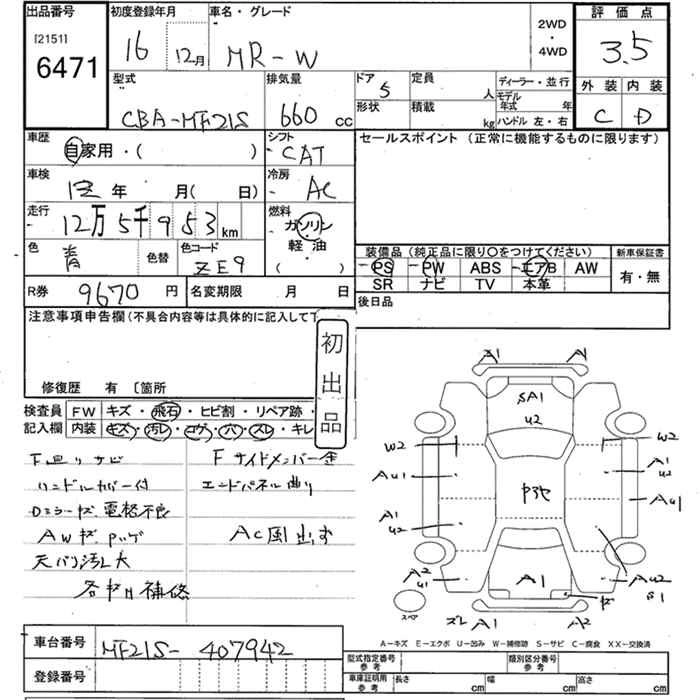 出品番号 初度登録年月 車名・グレード 評価点
[2151] 16 12月 MR-W 2WD
6471 ・ 3.5
4WD
型式 排気量 ドア 定員 ディーラー・並行 外装 内装
CBA-MF21S 660 CC 5 人 モデル年式 年 C D
形状 積載 kg ハンドル 左・右
車歴 自家用・( ) シフト セールスポイント (正常に機能するものに限ります)
CAT
車検 年 月(日) 冷房 AC
走行 12万5千953km 燃料 ガソリン
色 青 色替 色コード ZE9 軽油
( )
装備品(純正品に限り○をつけてください) 新車保証書
PS PW ABS エアB AW 有・無
R券 9670円 名変期限 月 日 SR ナビ TV 本革
後日品
注意事項申告欄(不具合内容等は具体的に記入して下
初出品
修復歴 有 〔箇所
検査員 FW キズ・飛石・ヒビ割・リペア跡・
記入欄 内装 キズ・汚レ・コゲ・穴・スレ・キレ
下廻りサビ Fサイドメンバー
ハンドルカバー付 エンドパネル曲り
Dミラーキズ、電格不良
AWキズ AC風出ず
天バリ汚レ大
補修
A1 A1
SA1
U2
W2 W2
AU1 A1
U2
A1 AU1
U2
A2 AU2
U1 S1
A1
スペア ズレ A1 A2
A-キズ E-エクボ U-凹み W-補修跡 S-サビ C-腐食 XX-交換済
車台番号 MF21S-407942
型式指定番号 参考 類別区分番号 参考
登録番号 車庫証明用 参考 長さ cm 幅 cm 高さ cm